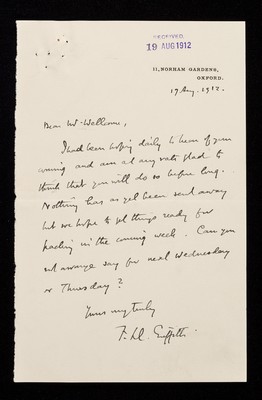 RECEIVED
19 AUG 1912
11, NORHAM GARDENS,
OXFORD.
17 Aug. 1912.
Dear Mr Wellcome,
I had been hoping daily to hear of your
coming and am at any rate glad to
think that you will do so before long.
Nothing has as yet been sent away
but we hope to get things ready for
packing in the coming week. Can you
not arrange say for next Wednesday
or Thursday?
Yours very truly
F. Ll. Griffith.